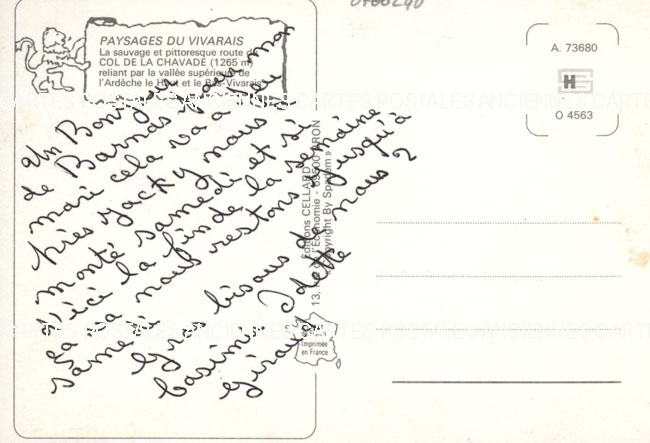 PAYSAGES DU VIVARAIS
La sauvage et pittoresque route du
COL DE LA CHAVADE (1265 m)
reliant par la vallée supérieure de
l'Ardèche le Haut et le Bas-Vivarais
Un Bonjour
de Barnas, pour mon
mari cela va à peu
près Jacky nous a
monté samedi et si
d'ici la fin de la semaine
ça va nous restons jusqu'à
samedi
Gros bisous de nous 2
Casimir Odette
Gérard
Editions CELLARD
13, rue de l'Economie - 69500 BRON
Copyright By Spadem »
Imprimée
en France
A. 73680
O 4563
CARTES POSTALES ANCIENNES CARTES POSTALES ANCIENNES CARTES
CARTES POSTALES ANCIENNES CARTES POSTALES ANCIENNES CARTE